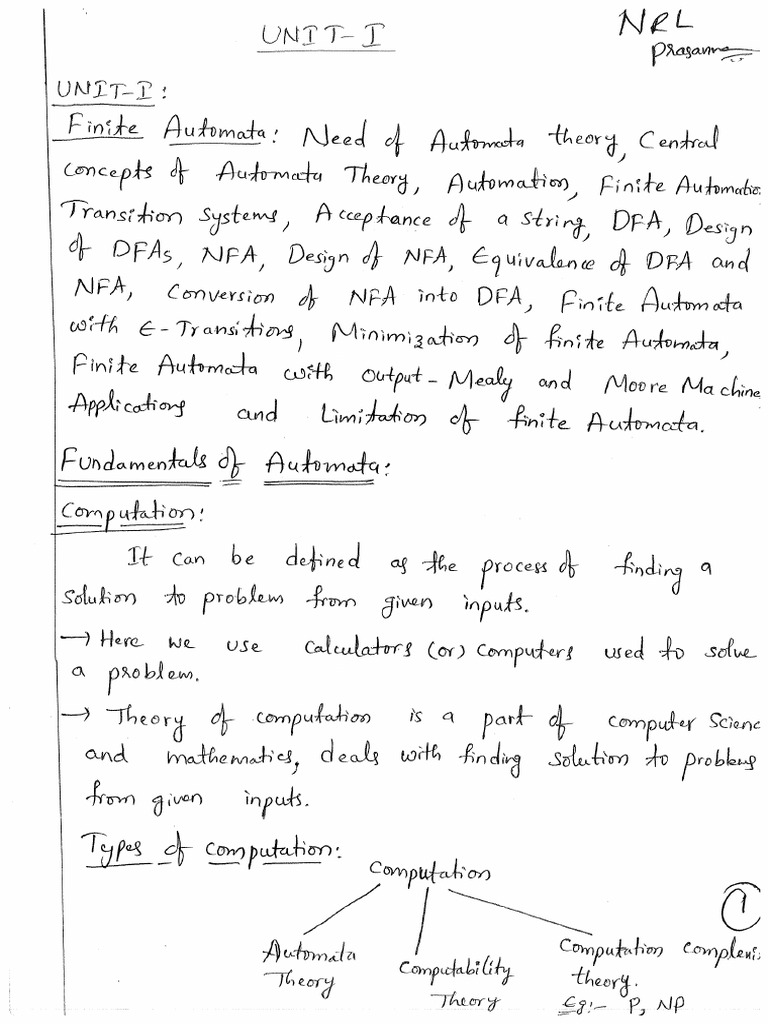 UNIT-I
NRL
Prasanna
UNIT-I:
Finite Automata: Need of Automata theory, Central
concepts of Automata Theory, Automation, Finite Automatio
Transition Systems, Acceptance of a string, DFA, Design
of DFAs, NFA, Design of NFA, Equivalence of DFA and
NFA, Conversion of NFA into DFA, Finite Automata
with ∈-Transitions, Minimization of finite Automata,
Finite Automata with output-Mealy and Moore Machine
Applications and Limitation of finite Automata.
Fundamentals of Automata:
Computation:
It can be defined as the process of finding a
solution to problem from given inputs.
→ Here we use calculators (or) computers used to solve
a problem.
→ Theory of computation is a part of computer Scienc
and mathematics, deals with finding solution to problems
from given inputs.
Types of computation:
Computation
1
Automata Computability Computation complexi
Theory Theory theory.
Eg:- P, NP